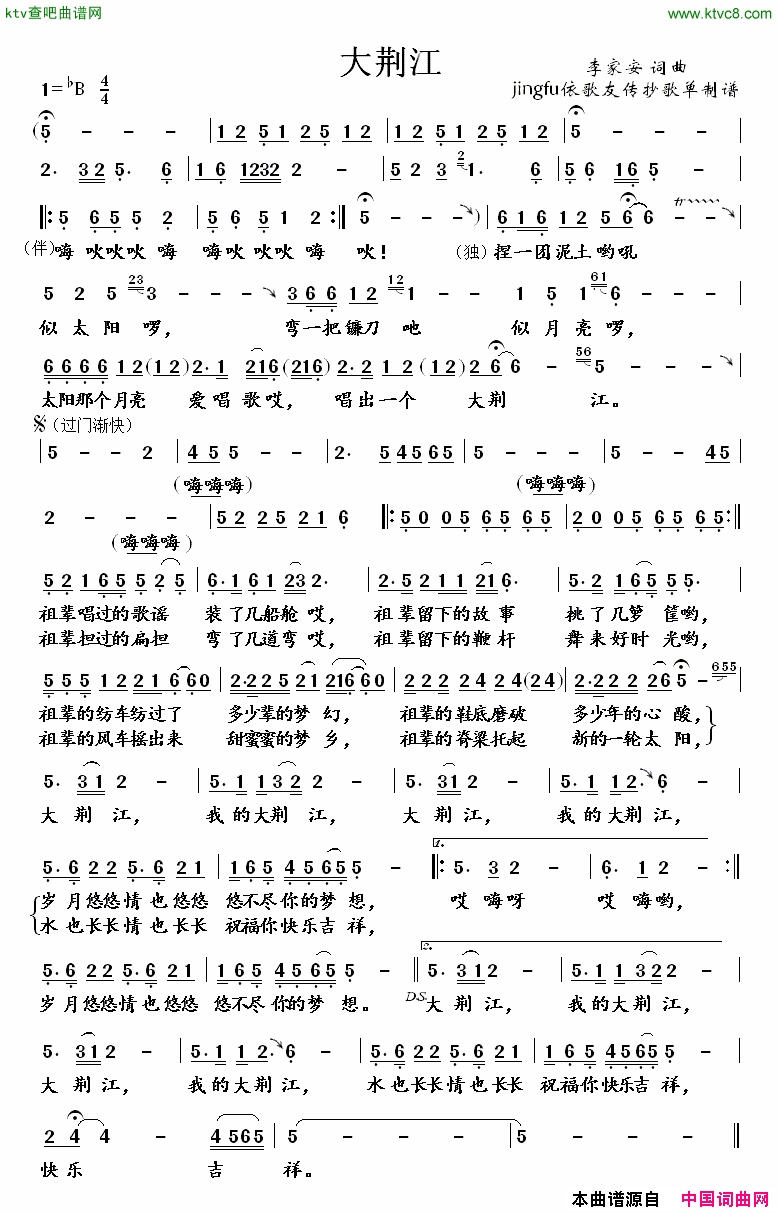 ktv查吧曲谱网
www.ktvc8.com
大荆江
1=♭B 4/4
李家安 词曲
jingfu依歌友传抄歌单制谱
(5 - - - | 1 2 5 1 2 5 1 2 | 1 2 5 1 2 5 1 2 | 5 - - - |
2· 3 2 5· 6 | 1 6 1232 2 - | 5 2 3 2 1· 6 | 5 6 16 5 - |
‖: 5 6 5 5 2 | 5 6 5 1 2 :‖ 5 - - - ) | 6 1 6 1 2 5 6 6 - - - |
(伴)嗨 吙吙吙 嗨 嗨吙 吙吙 嗨 吙! (独) 捏一团泥土哟吼
5 2 5 23 3 - - - | 3 6 6 1 2 12 1 - - | 1 5 1 61 6 - - - |
似 太 阳 啰, 弯一把镰刀 吔 似 月 亮 啰,
6 6 6 6 1 2 (1 2) | 2· 1 216 (216) | 2· 2 1 2 (1 2) | 2 6 6 - 56 5 - - |
太阳那个月亮 爱 唱 歌 哎, 唱 出 一 个 大 荆 江。
(过门渐快)
| 5 - - 2 | 4 5 5 - - | 2· 5 4 5 6 5 | 5 - - - | 5 - - 4 5 |
(嗨嗨嗨) (嗨嗨嗨)
2 - - - | 5 2 2 5 2 1 6 ‖: 5 0 0 5 6 5 6 5 | 2 0 0 5 6 5 6 5 :‖
(嗨嗨嗨)
5 2 1 6 5 5 2 5 | 6· 1 6 1 23 2· | 2· 5 2 1 1 21 6· | 5· 2 1 6 5 5· |
祖辈唱过的歌谣 装了几船舱 哎, 祖辈留下的故 事 挑了几箩 筐哟,
祖辈担过的扁担 弯了几道弯 哎, 祖辈留下的鞭 杆 舞来好时 光哟,
5 5 5 1 2 2 1 6 6 0 | 2· 2 2 5 2 1 216 6 0 | 2 2 2 2 4 2 4 (2 4) | 2· 2 2 2 2 6 5 - 655 |
祖辈的纺车纺过了 多少辈的梦 幻, 祖辈的鞋底磨破 多少年的心 酸,
祖辈的风车摇出来 甜蜜蜜的梦 乡, 祖辈的脊梁托起 新的一轮太 阳,
5· 31 2 - | 5· 1 1 3 2 2 - | 5· 31 2 - | 5· 1 1 2· 6 - |
大 荆 江, 我的大荆 江, 大 荆 江, 我的大荆 江,
5· 6 2 2 5· 6 2 1 | 1 6 5 4 5 6 5 5· - ‖: 1. 5· 3 2 - | 6· 1 2 - :‖
岁 月 悠悠 情 也 悠悠 悠不尽 你的 梦 想, 哎 嗨呀 哎 嗨哟,
水 也 长长 情 也 长长 祝福你 快乐 吉 祥,
5· 6 2 2 5· 6 2 1 | 1 6 5 4 5 6 5 5· - ‖ 2. 5· 31 2 - | 5· 1 1 3 2 2 - |
岁 月 悠悠 情 也 悠悠 悠不尽 你的 梦 想。 D.S. 大 荆 江, 我的大荆 江,
5· 31 2 - | 5· 1 1 2· 6 - | 5· 6 2 2 5· 6 2 1 | 1 6 5 4 5 6 5 5· - |
大 荆 江, 我的大荆 江, 水 也 长长 情 也 长长 祝福你 快乐 吉 祥,
2 4 4 - 4 5 6 5 | 5 - - - | 5 - - - ‖
快 乐 吉 祥。
本曲谱源自 中国词曲网